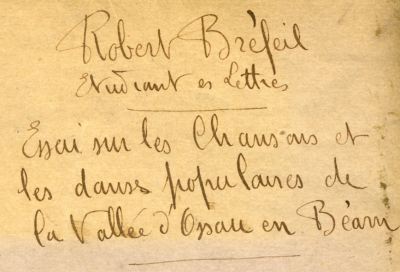 Robert Bréfeil
Etudiant es Lettres
Essai sur les Chansons et
les danses populaires de
la Vallée d'Ossau en Béarn